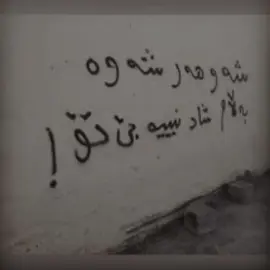 شەو هەر شەوە
بەڵام شاد نییە بێ تۆ !